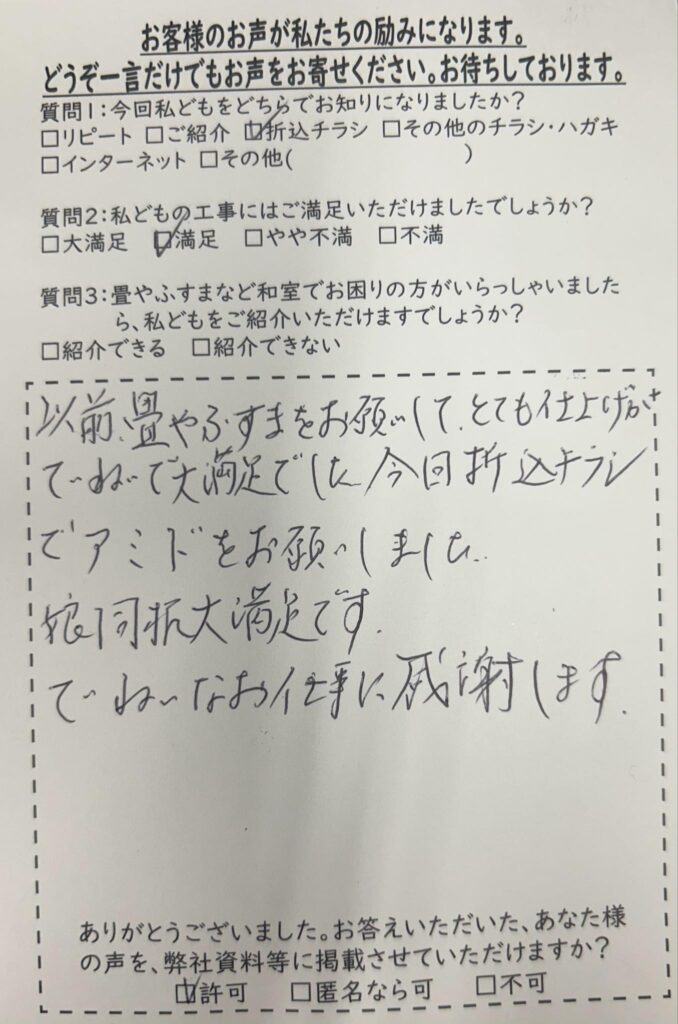 お客様のお声が私たちの励みになります。
どうぞ一言だけでもお声をお寄せください。お待ちしております。
質問1:今回私どもをどちらでお知りになりましたか?
□リピート □ご紹介 ☑折込チラシ □その他のチラシ・ハガキ
□インターネット □その他( )
質問2:私どもの工事にはご満足いただけましたでしょうか?
□大満足 ☑満足 □やや不満 □不満
質問3:畳やふすまなど和室でお困りの方がいらっしゃいました
ら、私どもをご紹介いただけますでしょうか?
□紹介できる □紹介できない
以前、畳やふすまをお願いして、とても仕上げが
ていねいで大満足でした 今回折込チラシ
でアミドをお願いしました
娘同様大満足です.
ていねいなお仕事に感謝します.
ありがとうございました。お答えいただいた、あなた様
の声を、弊社資料等に掲載させていただけますか?
☑許可 □匿名なら可 □不可